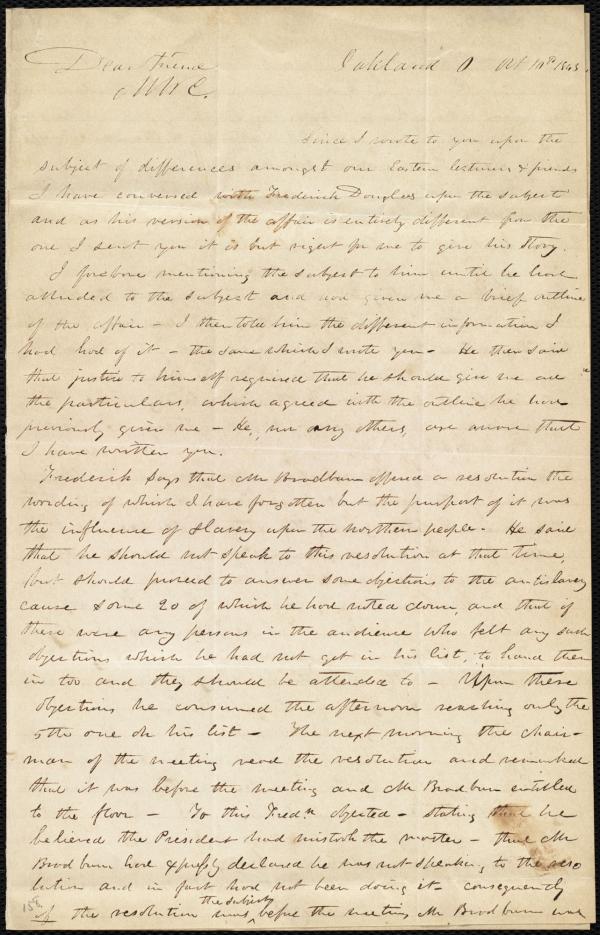 Dear friend
M W C.
Oakland O Oct 10th 1843.
Since I wrote to you upon the
subject of differences amongst our Eastern lecturers & friends
I have conversed with Frederick Douglass upon the subject
and as his version of the affair is entirely different from the
one I sent you it is but right for me to give his story.
I forbore mentioning the subject to him until he had
alluded to the subject and had given me a brief outline
of the affair - I then told him the different information I
had had of it - the same which I wrote you - He then said
that justice to himself required that he should give me all
the particulars, which agreed with the outline he had
previously given me - He, nor any others, are aware that
I have written you.
Frederick says that Mr Bradburn offered a resolution the
wording of which I have forgotten but the purport of it was
the influence of Slavery upon the northern people. He said
that he should not speak to this resolution at that time,
but should proceed to answer some objections to the antislavery
cause some 20 of which he had noted down, and that if
there were any persons in the audience who felt any such
objections which he had not got in his list, to hand them
in too and they should be attended to - Upon these
objections he consumed the afternoon reaching only the
5th one on his list - The next morning the chair-
man of the meeting read the resolution and remarked
that it was before the meeting and Mr Bradburn entitled
to the floor - To this Fredk objected - stating that he
believed the President had mistook the matter - that Mr
Bradburn had expressly declared he was not speaking to the reso
lution and in fact had not been doing it - consequently
if the resolution was the subject before the meeting Mr Bradburn was
158